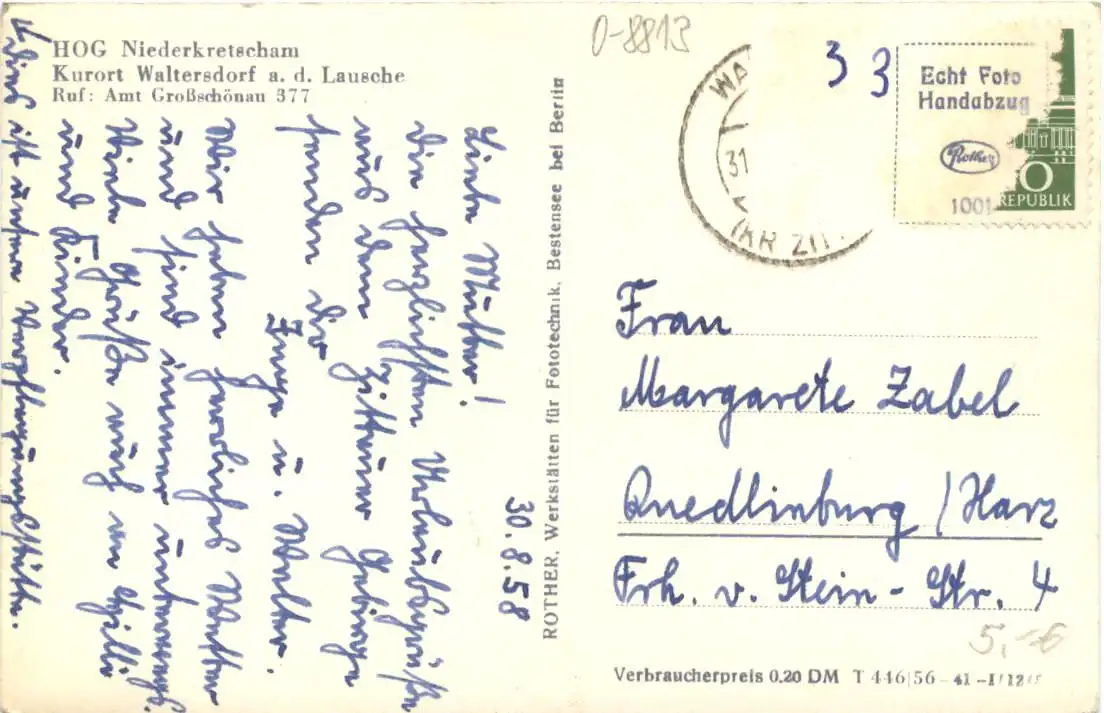 HOG Niederkretscham
Kurort Waltersdorf a. d. Lausche
Ruf: Amt Großschönau 377
30.8.58
Liebe Mutter!
Die herzlichsten Urlaubsgrüße
aus dem Zittauer Gebirge
senden dir
Inge u. Walter.
Wir haben herrliches Wetter
und sind immer unterwegs.
Viele Grüße auch an Hilli
und Kinder.
Dies ist unsere Verpflegungsstätte.
ROTHER, Werkstätten für Fototechnik, Bestensee bei Berlin
0-8813
33
WA
31
(KR ZIT
Echt Foto
Handabzug
Rother
1001
0
REPUBLIK
Frau
Margarete Zabel
Quedlinburg / Harz
Frh. v. Stein-Str. 4
5,-€
Verbraucherpreis 0.20 DM T 446/56-41-